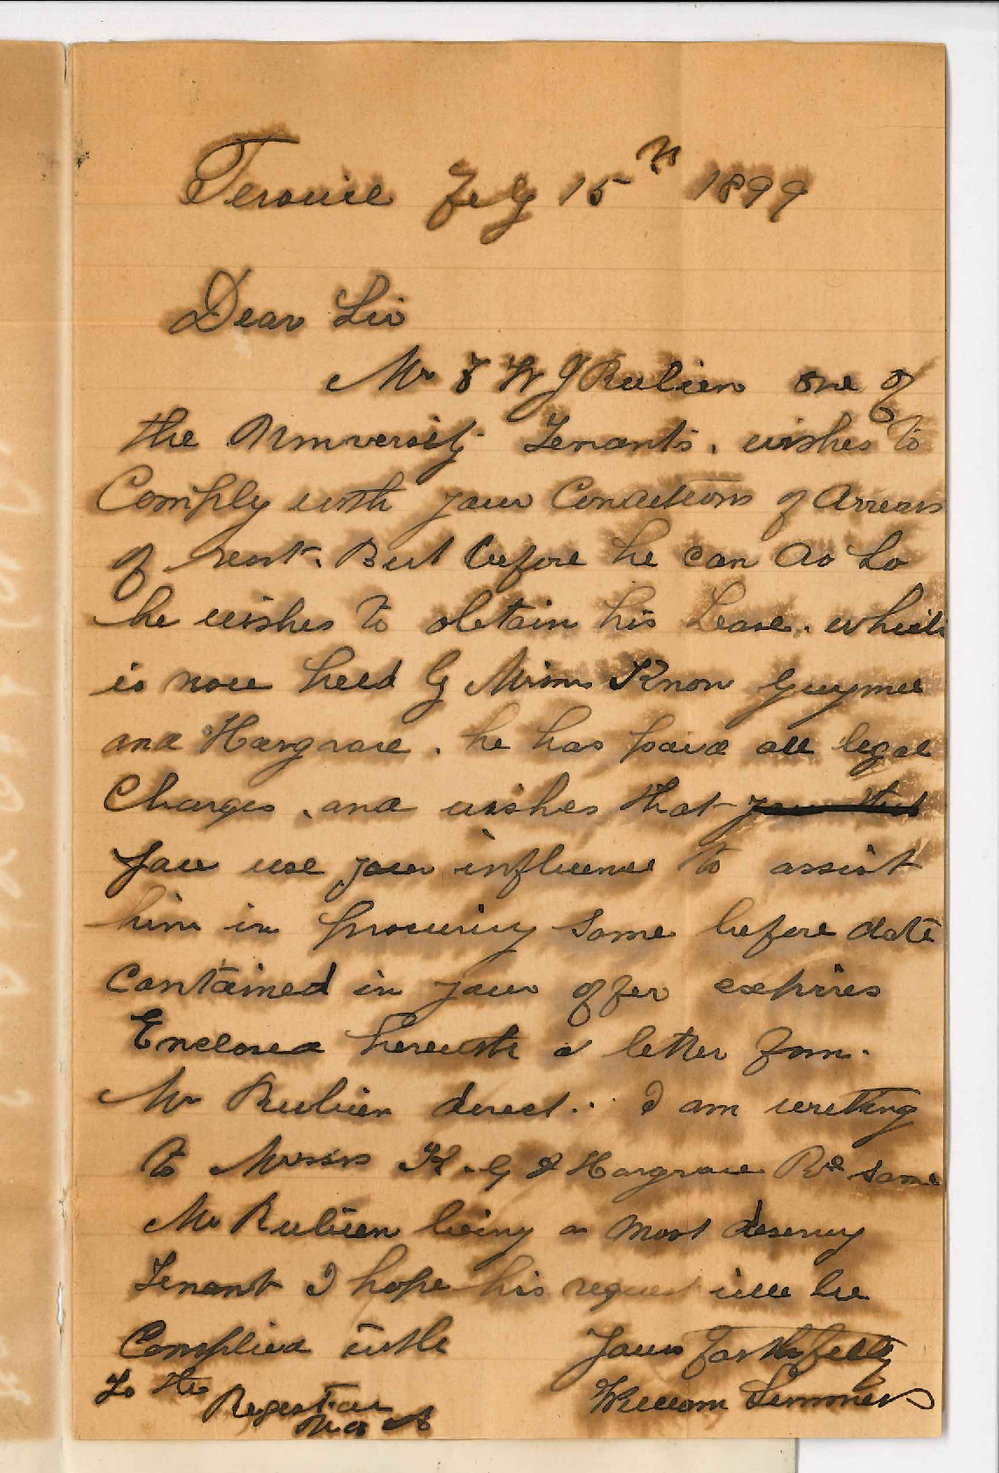 Terowie July 15th 1899
Dear Sir
Mr F W J Rubien one of
the Unniversity Tenants. wishes to
Comply with your Conditions of Arrears
of rent. But before he can do so
he wishes to obtain his Lease. which
is now held by Messrs Knox Gwynne
and Hargrave. he has paid all legal
Charges. and wishes that
you use your influence to assist
him in procuring same before date
contained in your offer expires
Enclosed herewith a letter from.
Mr Rubien direct... I am writing
to Messrs K. G & Hargrave Re same
Mr Rubien being a most deserving
Tenant I hope his request will be
Complied with Yours Faithfully
To the William Simmons
Registrar